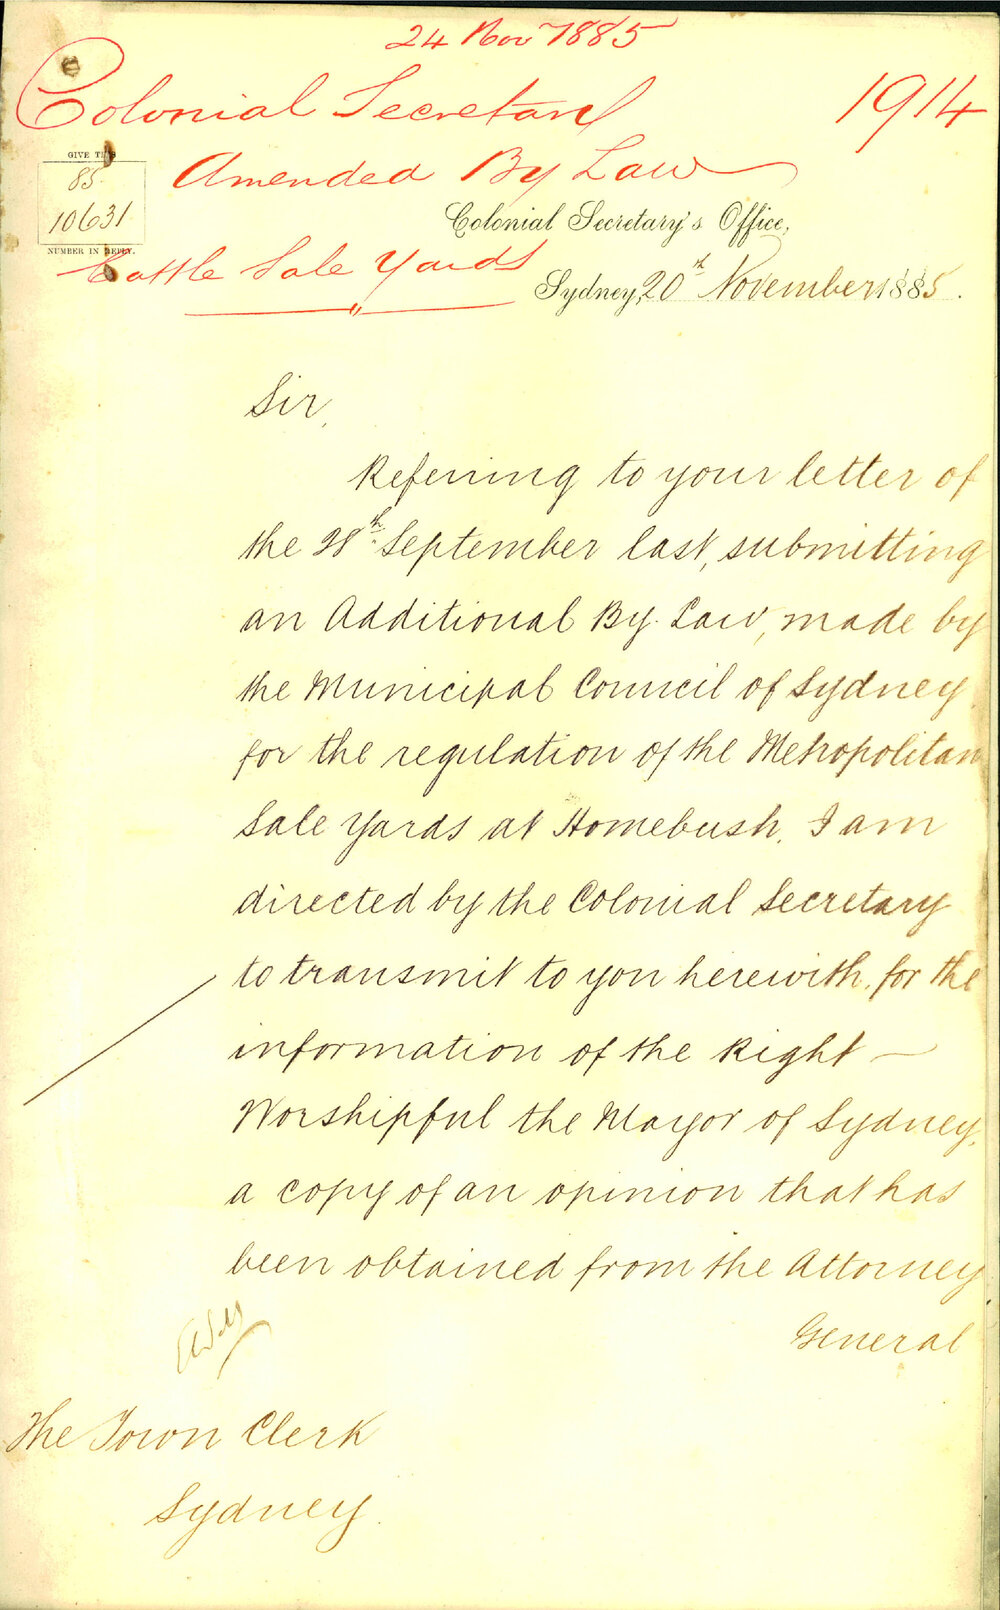 24 Nov 1885
Colonial Secretary
1914
GIVE THIS
85
10631
NUMBER IN REPLY.
Amended By Law
Colonial Secretary's Office,
Cattle Sale Yards
Sydney, 20th November 1885.
Sir,
Referring to your letter of
the 28th September last, submitting
an Additional By Law, made by
the Municipal Council of Sydney
for the regulation of the Metropolitan
Sale Yards at Homebush, I am
directed by the Colonial Secretary
to transmit to you herewith, for the
information of the Right
Worshipful the Mayor of Sydney,
a copy of an opinion that has
been obtained from the Attorney
General
The Town Clerk
Sydney.